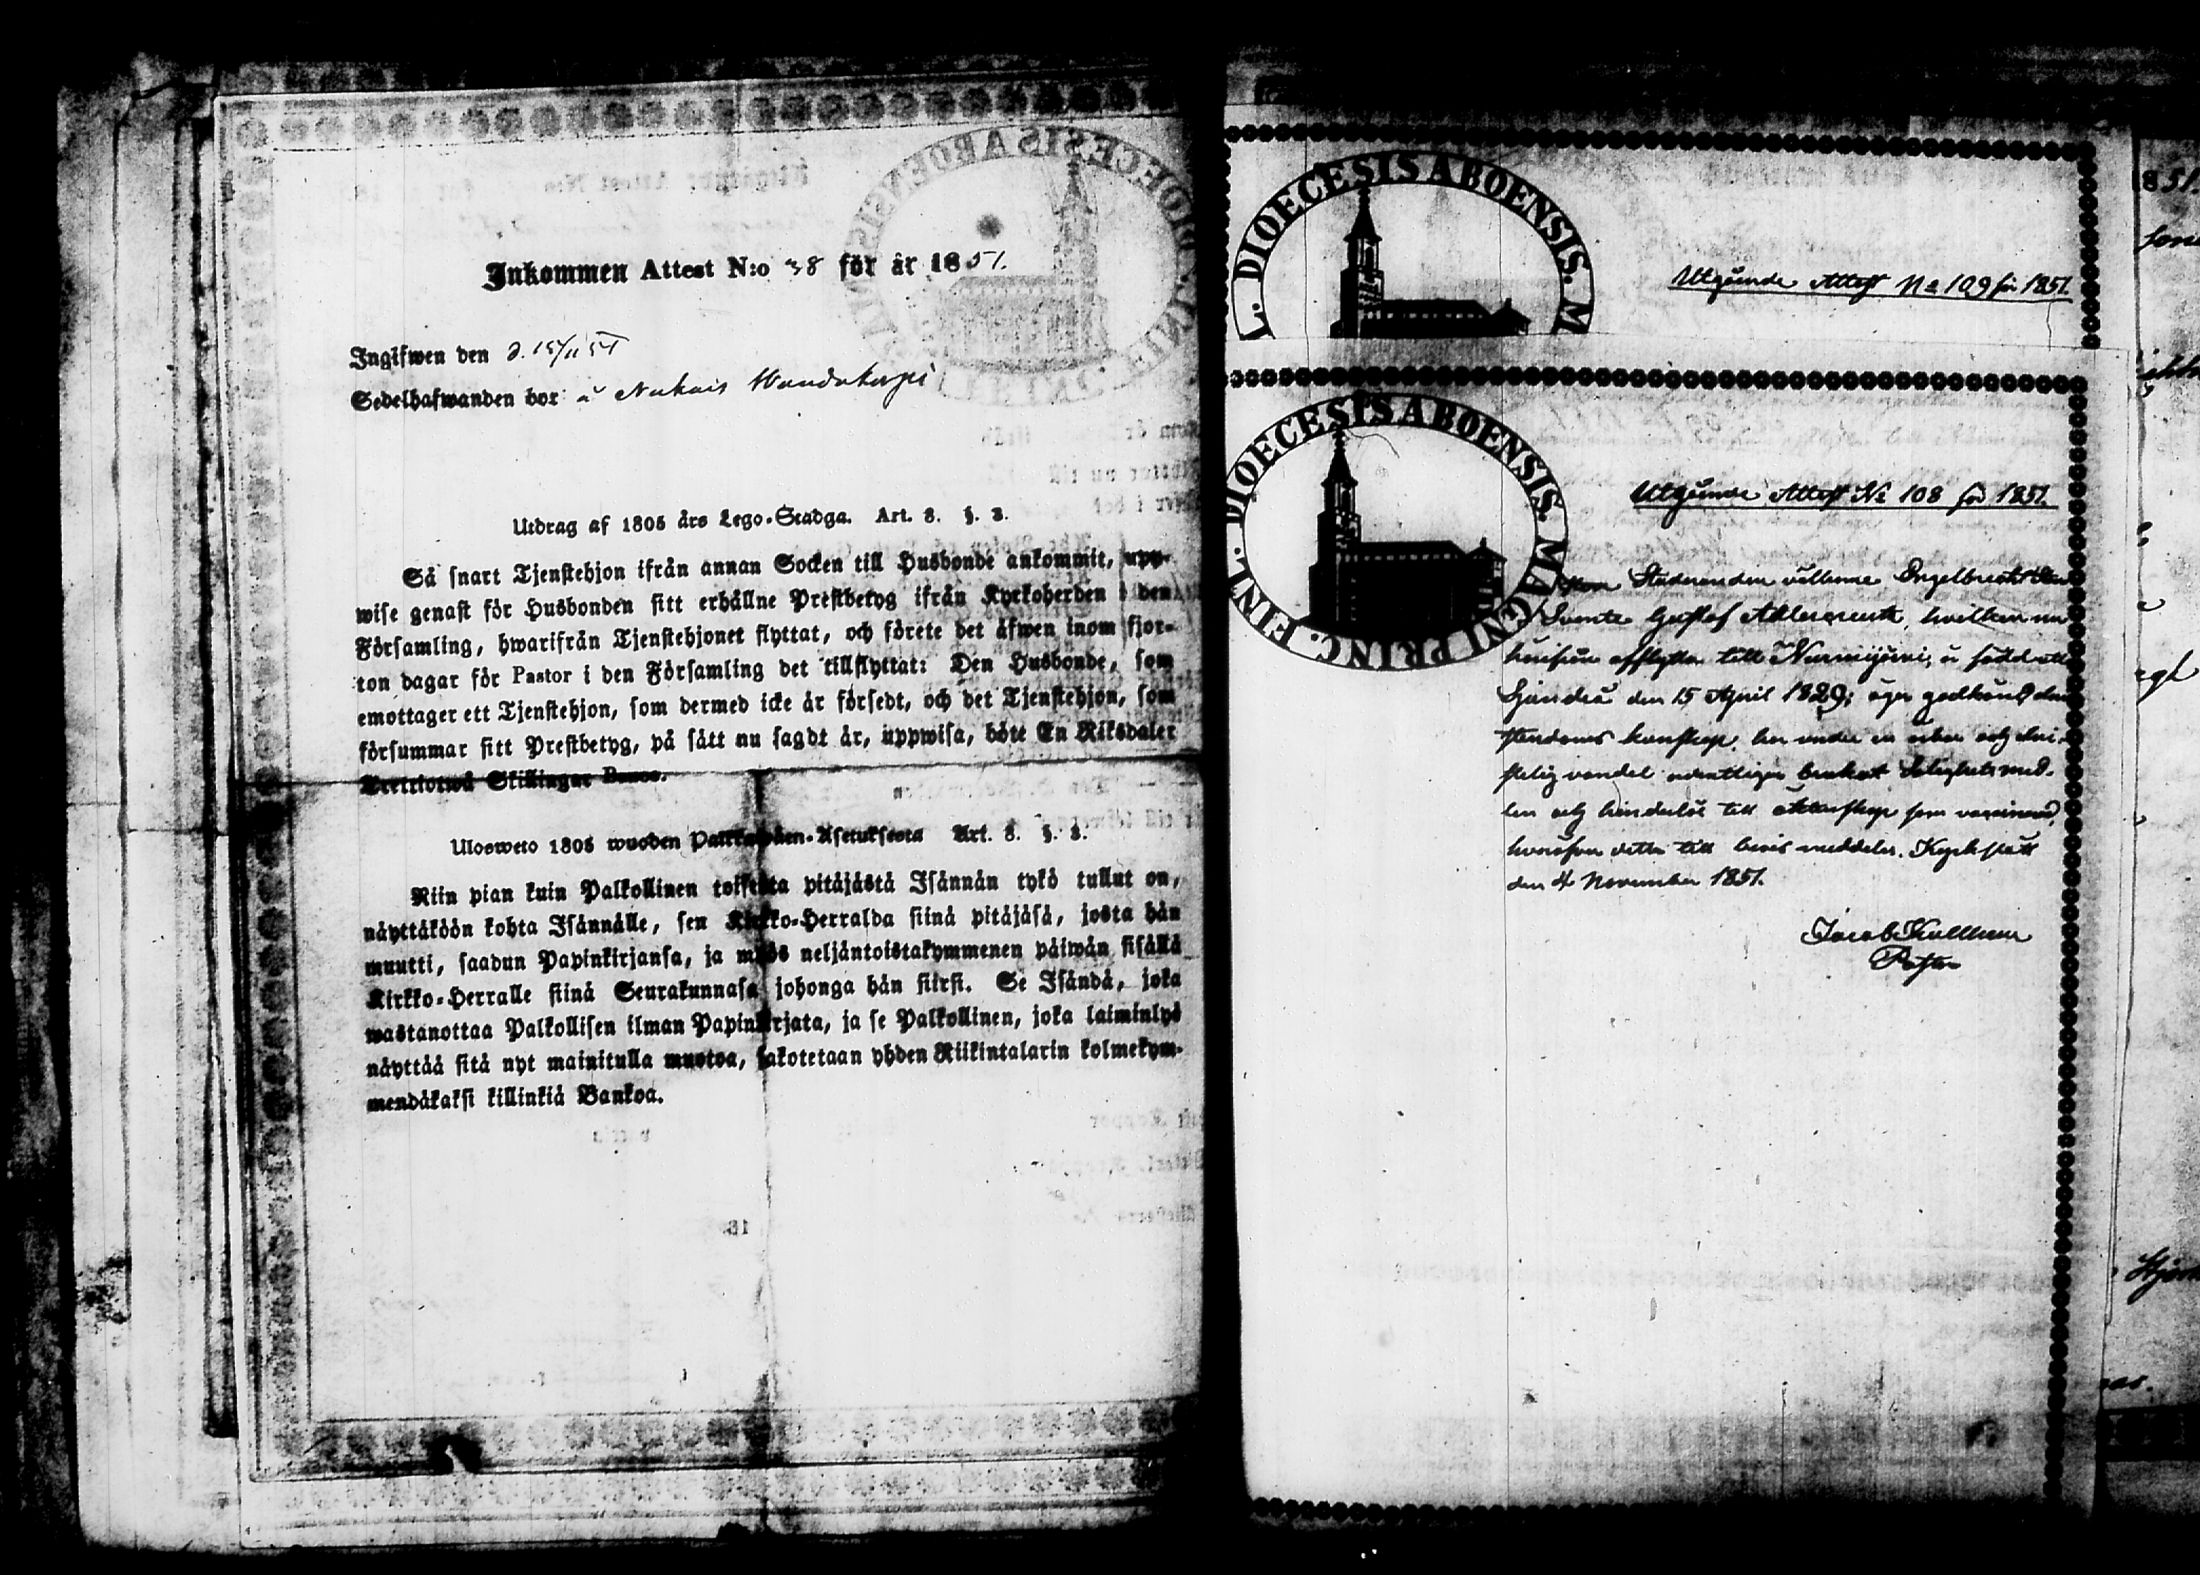 Inkommen Attest N:o 38 för år 1851.
Ingifwen den d. 15/11 51
Sedelhafwanden bor å Nukais Wandokorpi
Utdrag af 1805 års Lego-Stadga. Art. 8. §. 3.
Så snart Tjenstehjon ifrån annan Socken till Husbonde ankommit, upp-
wise genast för Husbonden sitt erhållne Prestbetyg ifrån Kyrkoherden i den
Församling, hwarifrån Tjenstehjonet flyttat, och förete det äfwen inom fjor-
ton dagar för Pastor i den Församling det tillflyttat: Den Husbonde, som
emottager ett Tjenstehjon, som dermed icke är försedt, och det Tjenstehjon, som
försummar sitt Prestbetyg, på sätt nu sagdt är, uppwisa, böte En Riksdaler
Trettiotwå Skillingar Banco.
Ulosweto 1805 wuoden Palkawäen-Asetuksesta Art. 8. §. 3.
Niin pian kuin Palkollinen toisesta pitäjästä Isännän tykö tullut on,
näyttäköön kohta Isännälle, sen Kirkko-Herralda siinä pitäjäsä, josta hän
muutti, saadun Papinkirjansa, ja myös neljäntoistakymmenen päiwän sisällä
Kirkko-Herralle siinä Seurakunnasa johonga hän siirsi. Se Isändä, joka
wastanottaa Palkollisen ilman Papinkirjata, ja se Palkollinen, joka laiminlyö
näyttää sitä nyt mainitulla muotoa, sakotetaan yhden Riikintalarin kolmekym-
mendäkaksi killinkiä Bankoa.
18
L. DIOECESIS ABOENSIS. M
Utgående Attest No 109 för 1851.
DIOECESIS ABOENSIS. MAGNI PRINC. FINL.
Utgående Attest No 108 för 1851.
Studeranden vällärne Engelbrecht
Gustaf Adlercreutz, hvilken nu
härifrån afflyttar till Nurmijärvi, är född uti
Sjundeå den 15 April 1829; äger godkänd
stendoms kunskap, har under en ärbar och chri-
stelig vandel ordentligen brukat Salighetsmed-
len och hinderlös till äktenskap som
hvarföre detta till bevis meddelas. Kyrkslätt
den 4 November 1851.
Jacob
Pastor
1851.